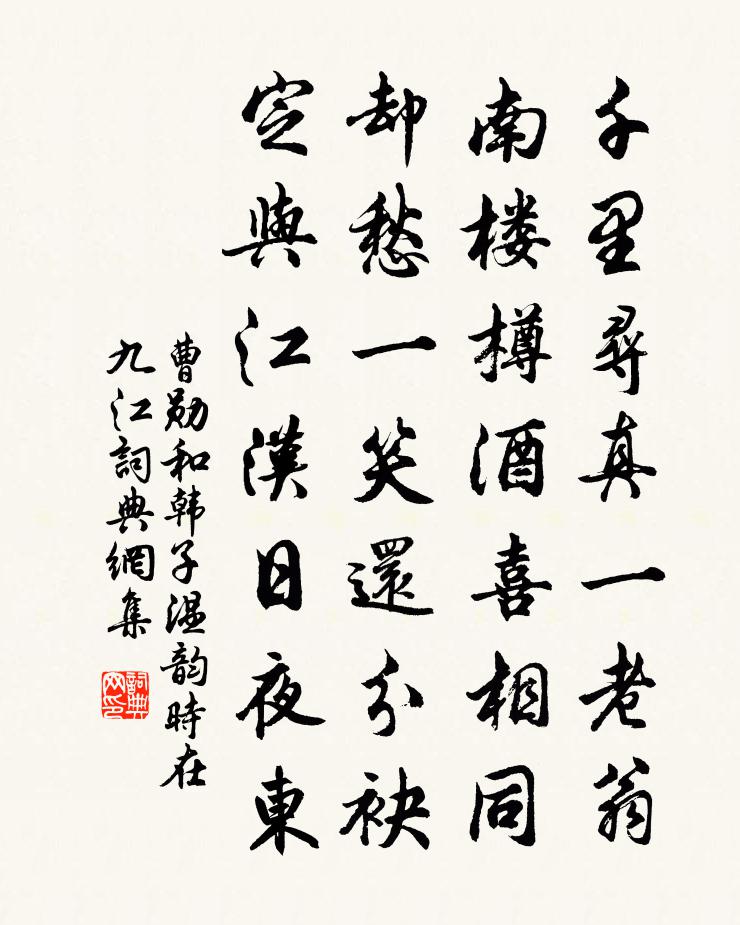 千里尋真一老翁
南楼樽酒喜相同
却愁一笑還分袂
定與江漢日夜東
曹勛和韩子温韵時在
九江詞典網集
詞典网印